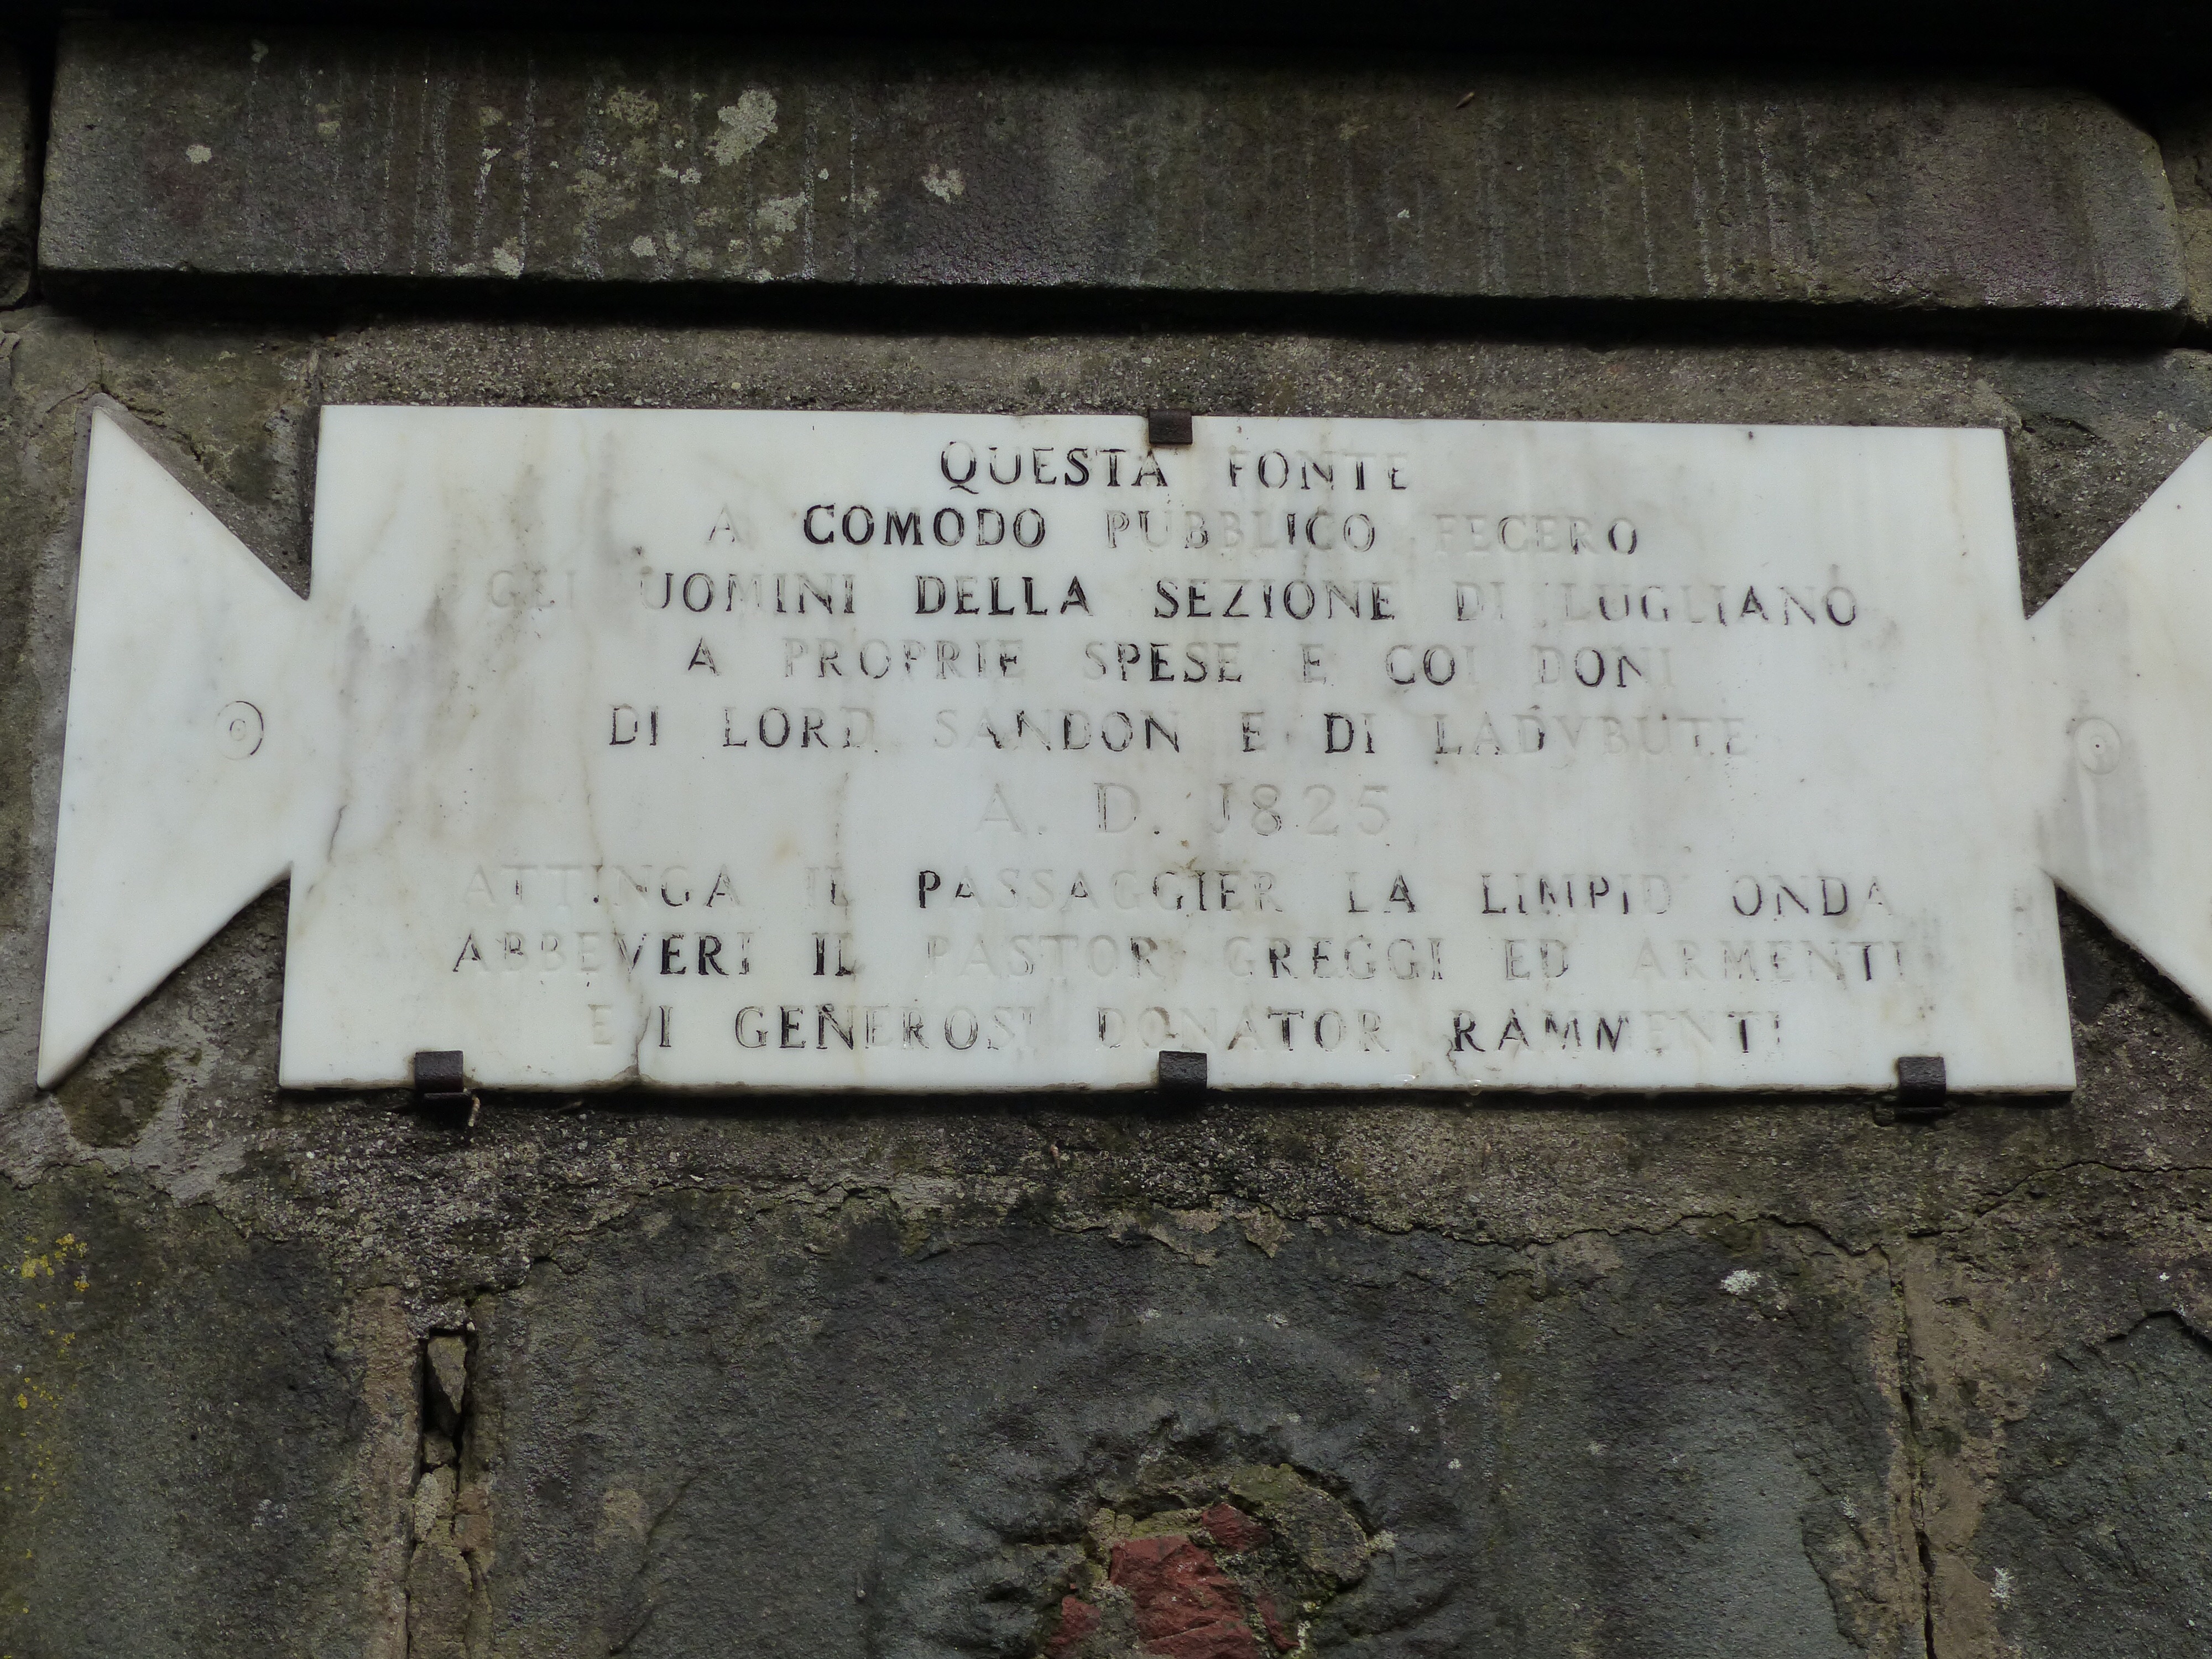 QUESTA FONTE
A COMODO PUBBLICO FECERO
GLI UOMINI DELLA SEZIONE DI LUGLIANO
A PROPRIE SPESE E COI DONI
DI LORD SANDON E DI LADYBUTE
A. D. 1825
ATTINGA IL PASSAGGIER LA LIMPID' ONDA
ABBEVERI IL PASTOR GREGGI ED ARMENTI
E I GENEROSI DONATOR RAMMENTI